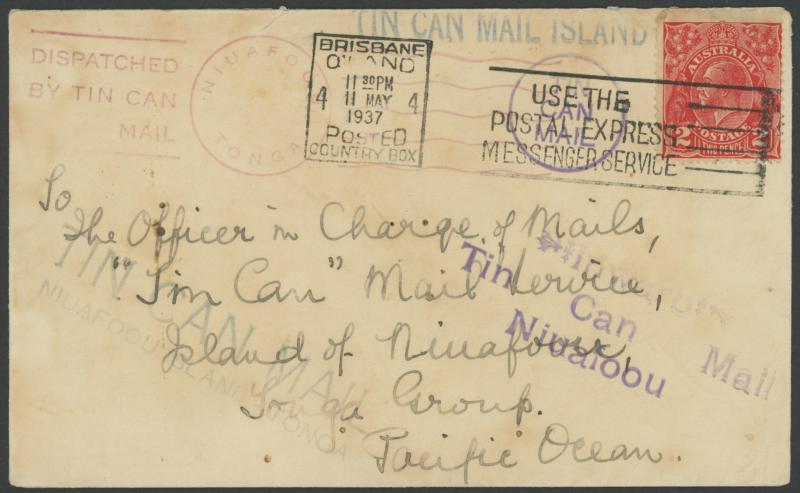 TIN CAN MAIL ISLAND
DISPATCHED
BY TIN CAN
MAIL
NIUAFOOU
TONGA
BRISBANE
Q'LAND
11 30PM
4 11 MAY 4
1937
POSTED
COUNTRY BOX
TIN
CAN
MAIL
USE THE
POSTAL EXPRESS
MESSENGER SERVICE
AUSTRALIA
POSTAGE
TWO PENCE
To
The Officer in Charge of Mails,
"Tin Can" Mail Service,
Island of Niuafoou,
Tonga Group.
Pacific Ocean.
Tin Can Mail
Niuafoou
TIN CAN MAIL
NIUAFOOU ISLAND TONGA